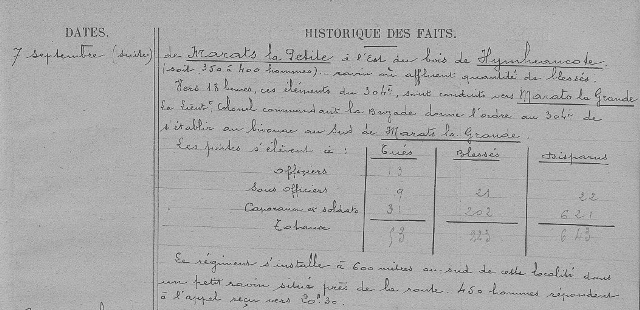 DATES. HISTORIQUE DES FAITS.
7 septembre (suite) de Marats la Petite à l'Est du bois de
(soit 350 à 400 hommes)... ravin où affluent quantité de blessés.
Vers 18 heures, ces éléments du 304e, sont conduits vers Marats la Grande
Le Lieut. Colonel commandant la Brigade donne l'ordre au 304e de
s'établir au bivouac au Sud de Marats la Grande.
Les pertes s'élèvent à : Tués Blessés Disparus
Officiers 13
Sous Officiers 9 21 22
Caporaux et soldats 31 202 621
Totaux 53 223 643
Le régiment s'installe à 600 mètres au sud de cette localité dans
un petit ravin situé près de la route. 450 hommes répondent
à l'appel reçu vers 20h30.